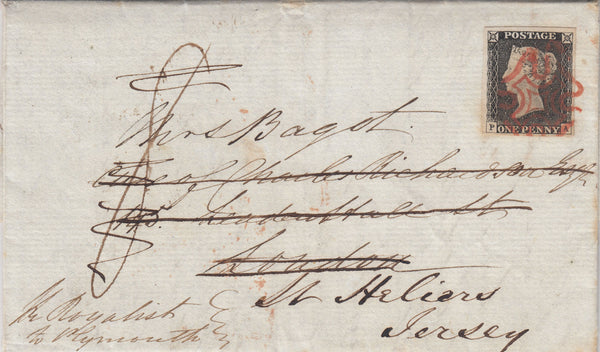 POSTAGE
P ONE PENNY A
Mrs Bagot.
Care of Charles Richardson Esq
145. Leadenhall St
London
St Heliers
Jersey
Royalist
to Plymouth